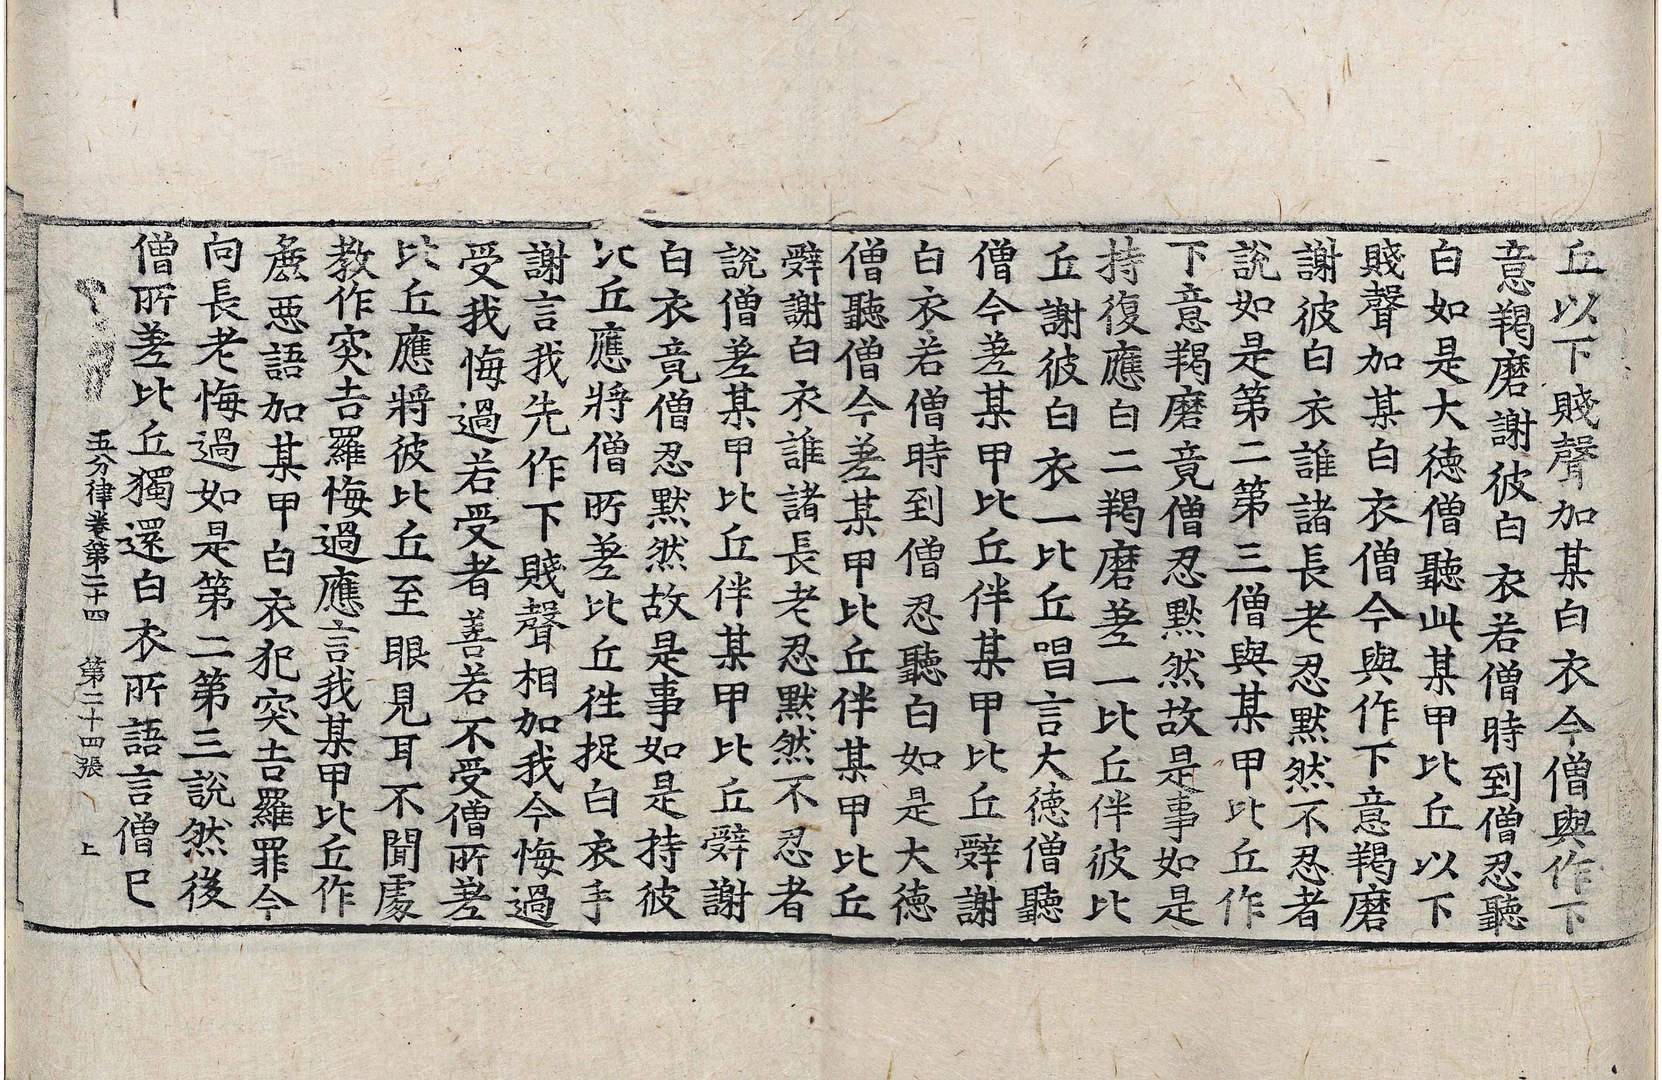 丘以下賤聲加某白衣今僧與作下
意羯磨謝彼白衣若僧時到僧忍聽
白如是大德僧聽此某甲比丘以下
賤聲加某白衣僧今與作下意羯磨
謝彼白衣誰諸長老忍默然不忍者
說如是第二第三僧與某甲比丘作
下意羯磨竟僧忍默然故是事如是
持復應白二羯磨差一比丘伴彼比
丘謝彼白衣一比丘唱言大德僧聽
僧今差某甲比丘伴某甲比丘辤謝
白衣若僧時到僧忍聽白如是大德
僧聽僧今差某甲比丘伴某甲比丘
辤謝白衣誰諸長老忍默然不忍者
說僧差某甲比丘伴某甲比丘辤謝
白衣竟僧忍默然故是事如是持彼
比丘應將僧所差比丘徃捉白衣手
謝言我先作下賤聲相加我今悔過
受我悔過若受者善若不受僧所差
比丘應將彼比丘至眼見耳不聞處
教作突吉羅悔過應言我某甲比丘作
麁惡語加某甲白衣犯突吉羅罪今
向長老悔過如是第二第三說然後
僧所差比丘獨還白衣所語言僧已
五分律卷第二十四 第二十四張 上